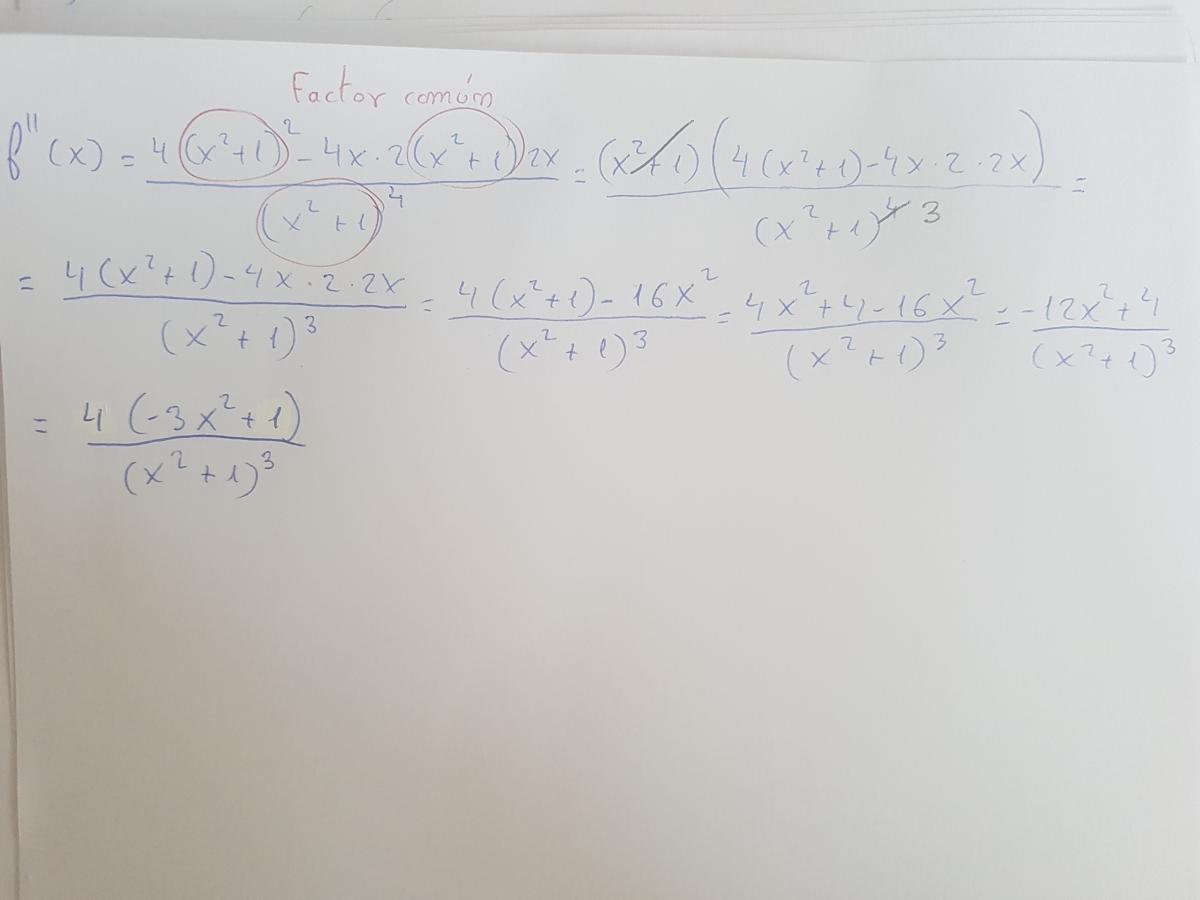 Factor común
f''(x) = \frac{4(x^2+1)^2 - 4x \cdot 2(x^2+1)2x}{(x^2+1)^4} = \frac{(x^2+1)(4(x^2+1) - 4x \cdot 2 \cdot 2x)}{(x^2+1)^{4\ 3}} =
= \frac{4(x^2+1) - 4x \cdot 2 \cdot 2x}{(x^2+1)^3} = \frac{4(x^2+1) - 16x^2}{(x^2+1)^3} = \frac{4x^2+4-16x^2}{(x^2+1)^3} = \frac{-12x^2+4}{(x^2+1)^3}
= \frac{4(-3x^2+1)}{(x^2+1)^3}